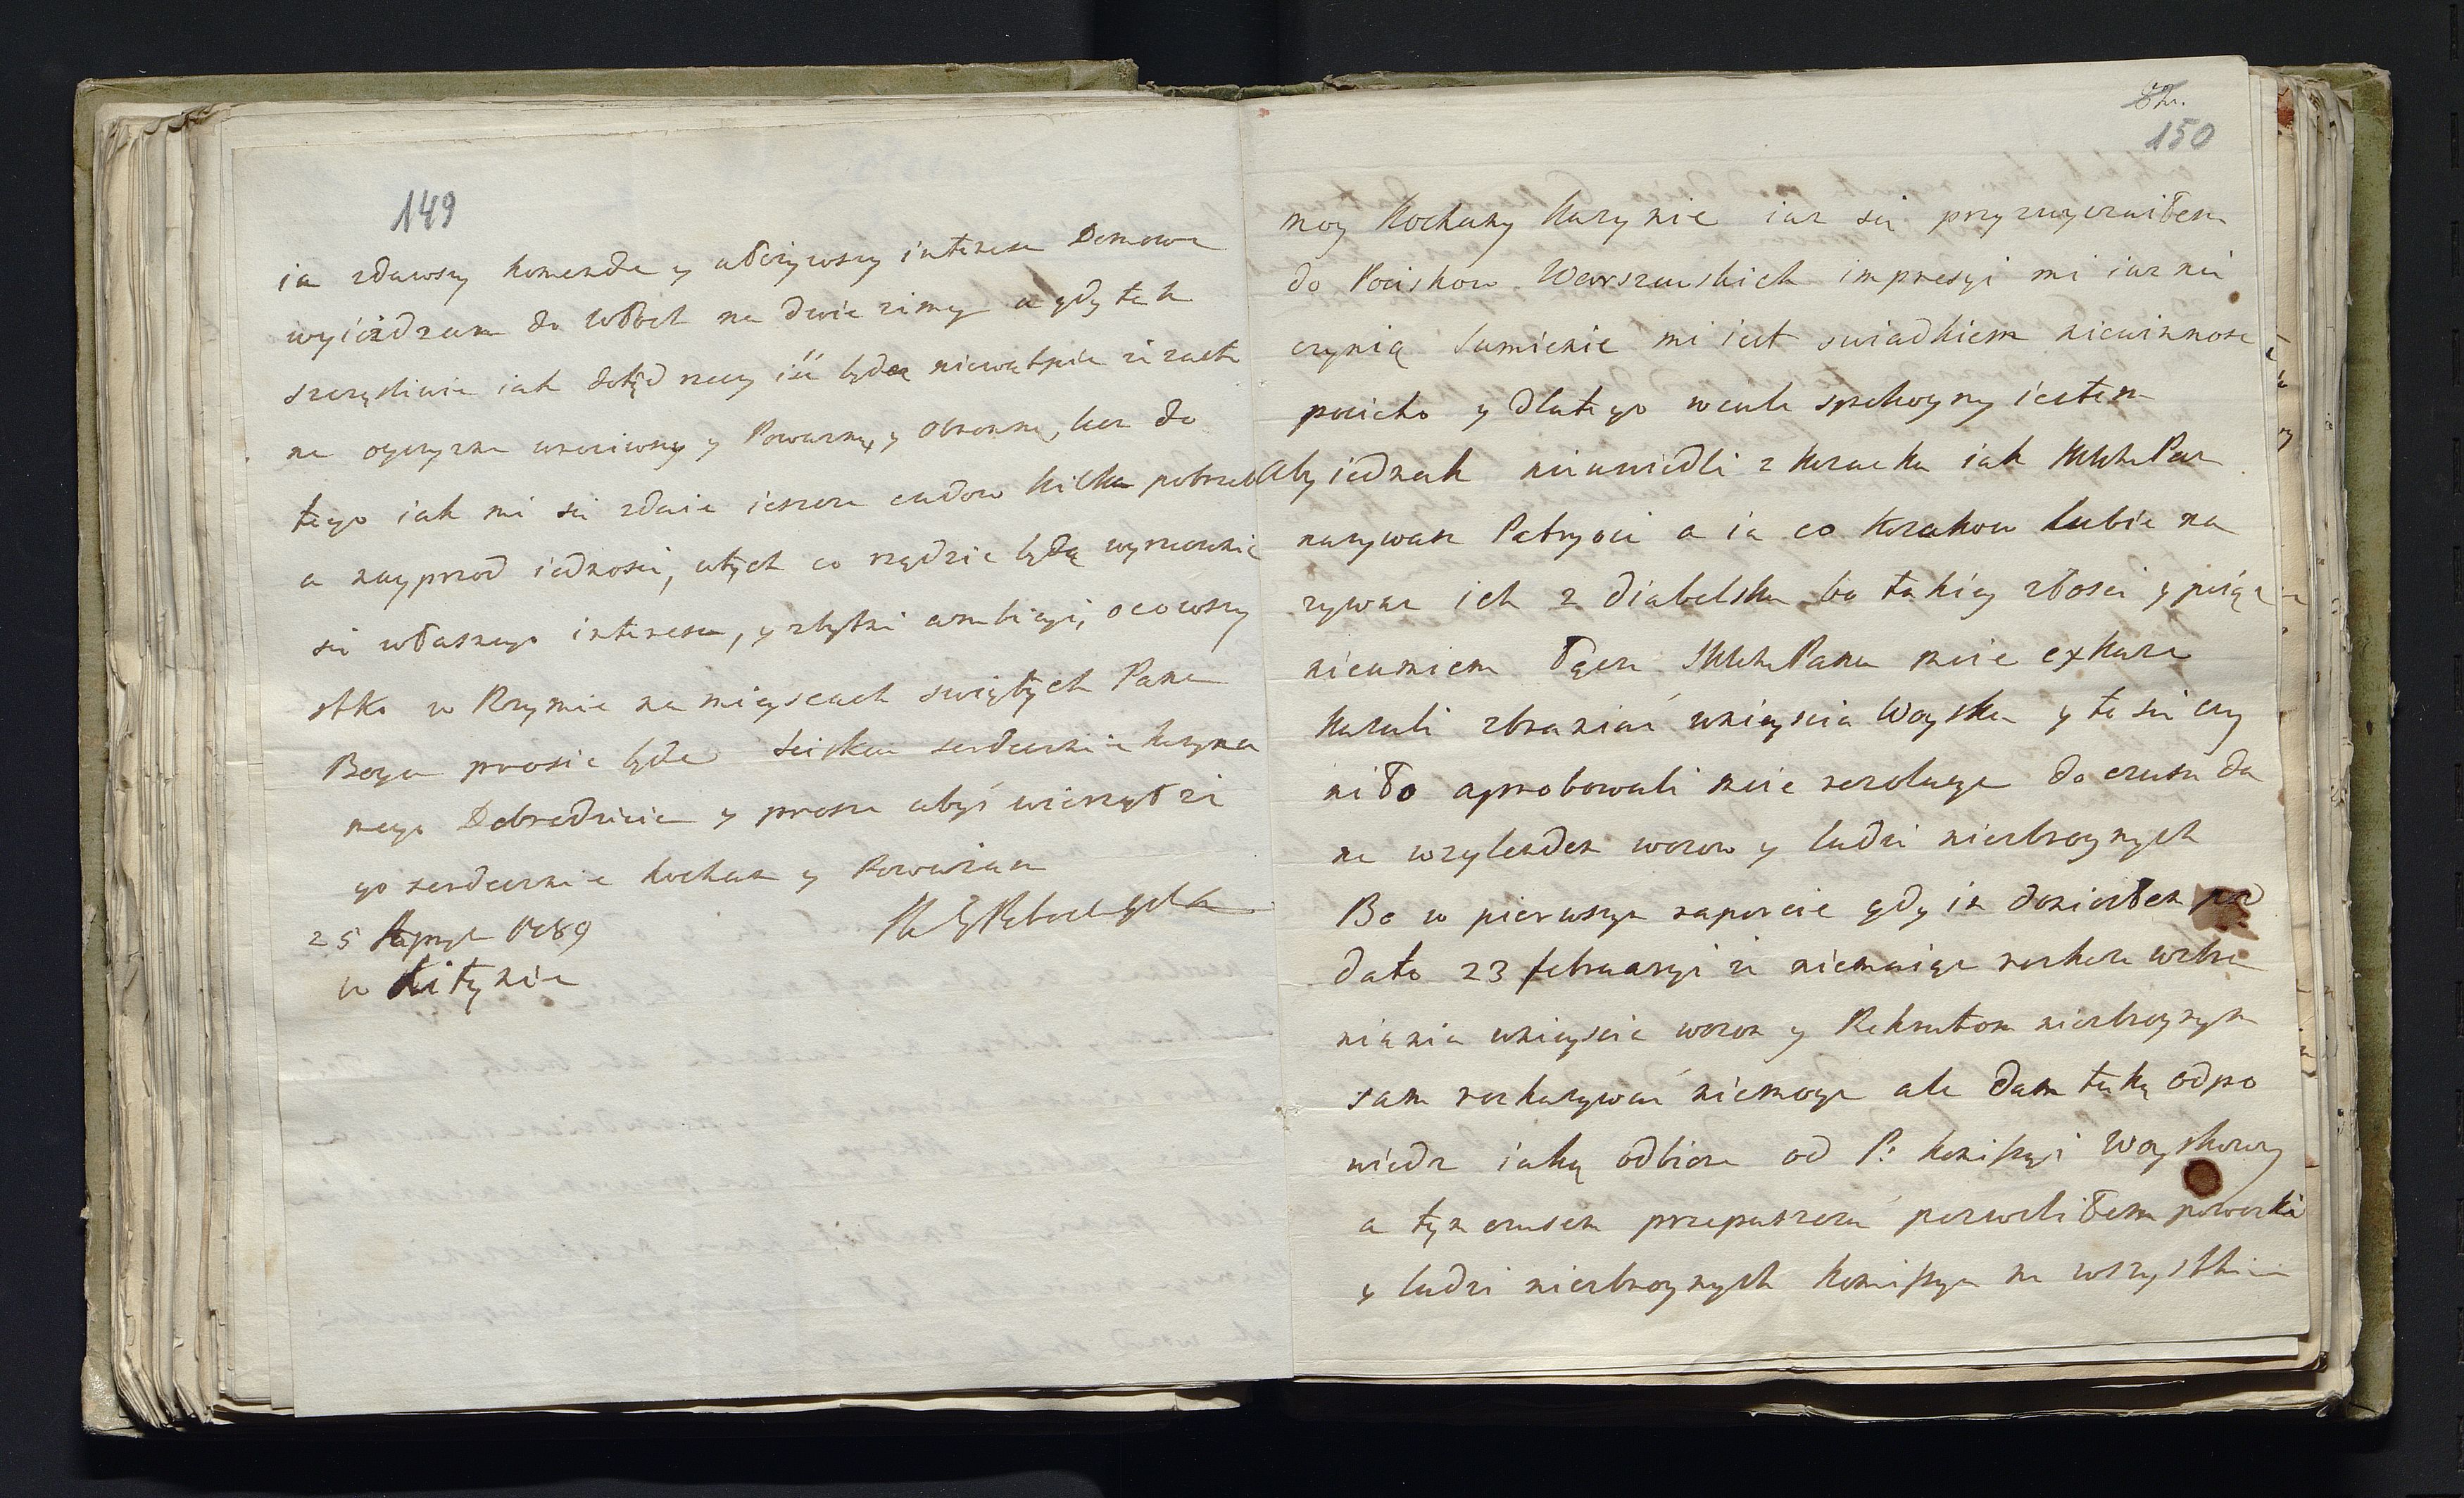 149
ia zdawszy komendę y ułożywszy interesa Domowe
wyieżdzam do Włoch na dwie zimy a gdy tak
szczęsliwie iak dotąd rzeczy iść będą niewątpie iż zasta
ne oyczyznę uszcziwszą y Powazną y obronną, lecz do
tego iak mi się zdaie ieszcze cudow kilka potrzeb
a nayprzod iednosci, wtych co rządzic będą wyrzeczenie
się własnego interesu, y zbytni ambicyi, o co wszy
stko w Rzymie na mieyscach swiętych Pana
Boga prosic będę sciskam serdecznie kuzyna
mego Dobrodzieia y proszę abyś wierzył że
go serdecznie kocham y Powazam
25 Apryl 1789
w Lityniе
150
moy Kochany Kuzynie iuz się przyzwyczaiłem
do Pociskow Warszawskich impresyi mi iuz nie
czynią Sumienie mi iest swiadkiem niewinnosc
pociecho y dlatego wcale spokoyny iestem
Aby iednak nieuwiedli z Kozacka iak WMc Pan
nazywasz Patryoci a ia co Kozakow lubie na
zywam ich z diabelska bo takiey złosci y piąc
nieumiem Łącze WMc Panu moie exkuze
Kazali zbraniać wniyscia Woyska y to się czy
niło aprobowali moie rezolucye do czasu da
ne względem wozow y ludzi niezbroynych
Bo w pierwszym raporcie gdy ia doniosłem pod
dato 23 februaryi iż niemaiąc rozkazu wzbra
niania wniyscia wozom y Rekrutom niezbroynym
sam rozkazywać niemogę ale dam taką odpo
wiedz iaką odbiorę od P: komissyi Woyskowey
a tym czasem przepuszczać pozwoliłem powozki
y ludzi niezbroynych komissya na wszystkie